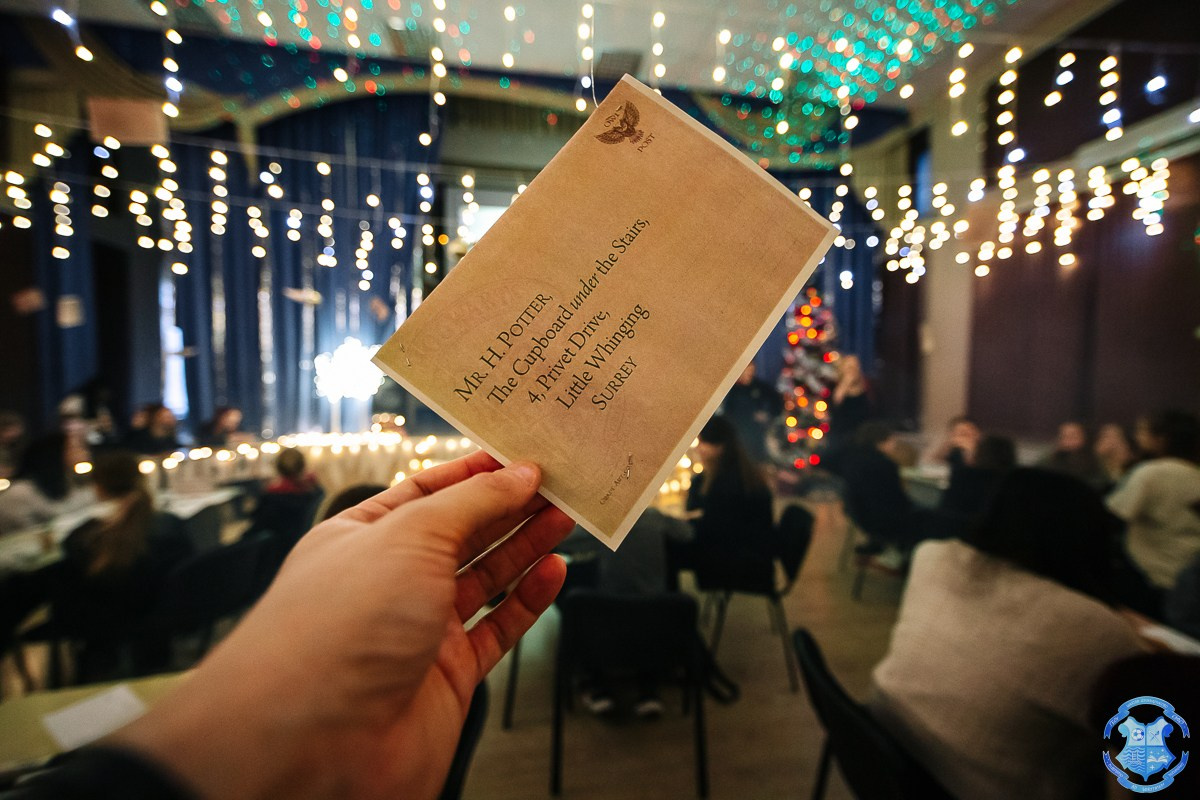 OWL
POST
MR. H. POTTER,
The Cupboard under the Stairs,
4, Privet Drive,
Little Whinging
SURREY